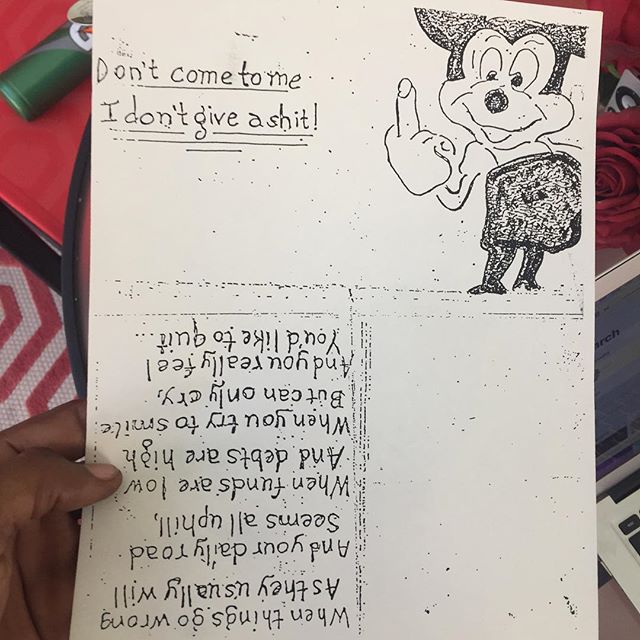 Don't come to me
I don't give a shit!
When things go wrong
As they usually will
And your daily road
Seems all uphill,
When funds are low
And debts are high
When you try to smile
But can only cry,
And you really feel
You'd like to quit...